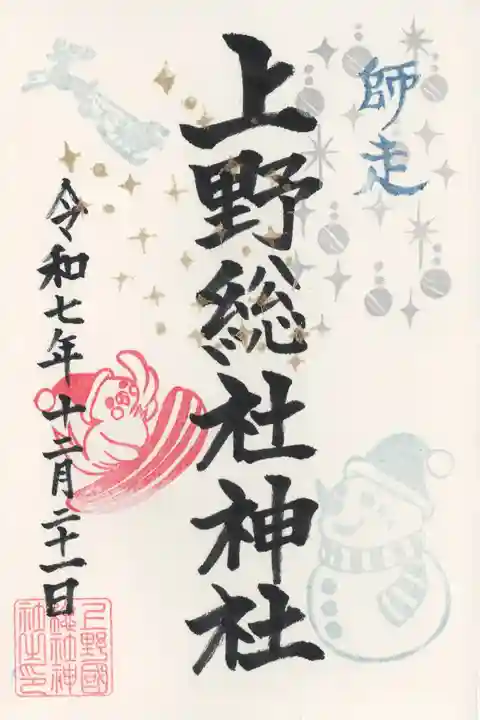 師走
上野総社神社
令和七年十二月二十一日
上野國
総社神
社之印